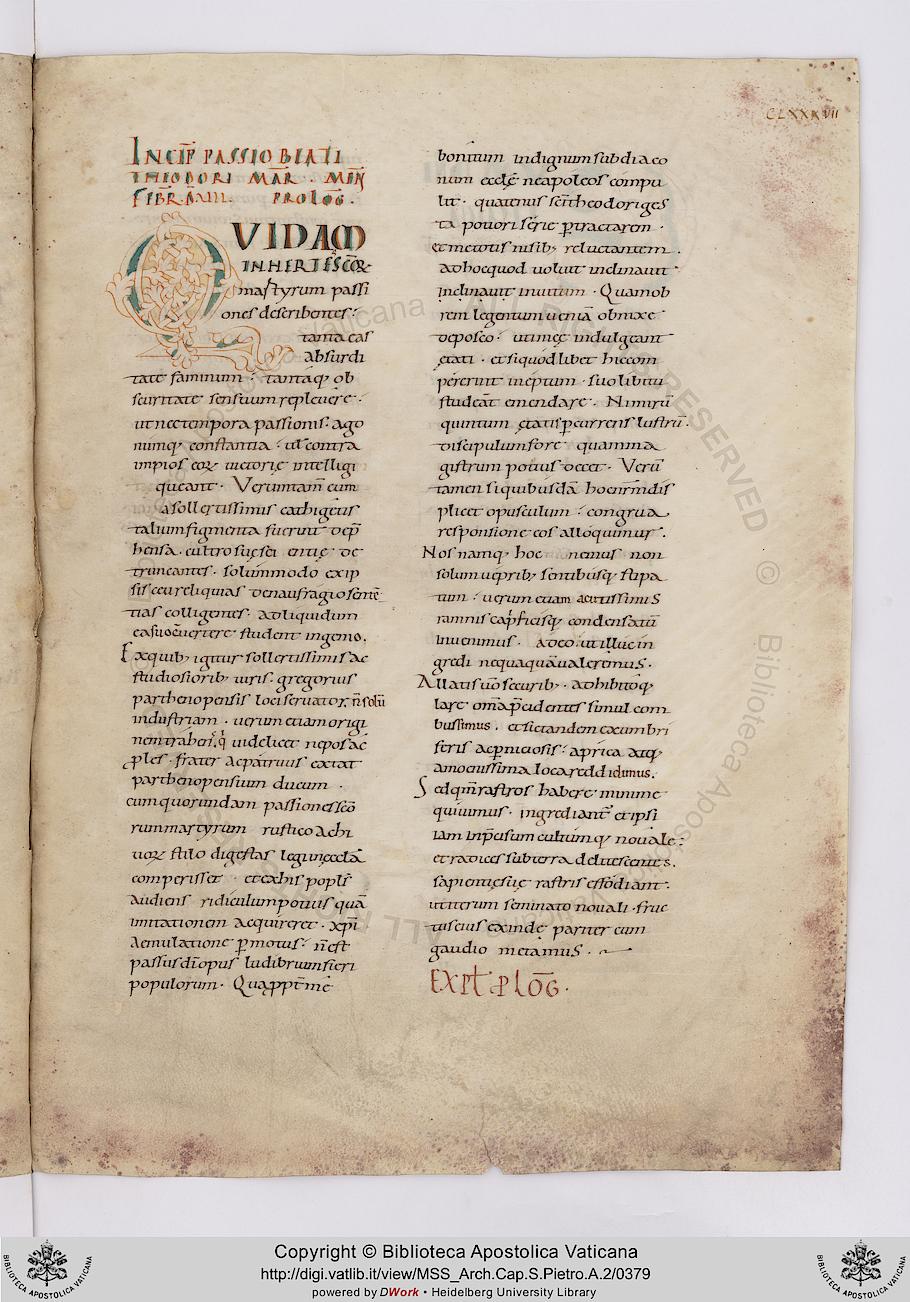 CLXXXVII
INCIP̄ PASSIO BEATI
THEODORI MAR̄ . MEN̄
FEBR̄ . PROLOḠ .
QUIDAM
INHERTES SC̄OR̄
martyrum passi
ones describentes :
tanta eas
absurdi
tate faminum : tantaq; ob
scuritate sensuum replevere .
ut nec tempora passionis . ago
numq; constantia . ul' contra
impios eorꝝ victorię intelligi
queant . Verumtam̄ cum
a sollertissimis cathigetis
talium figmenta fuerunt dep̄
hensa . cultro suę sci entię de
truncantes . solummodo exip
sis ceu reliquias de naufragio senten
tias colligentes . ad liquidum
ea suo cōvertere student ingenio .
Ex quib; igitur sollertissimis ac
studiosiorib; viris . gregorius
parthenopensis loci servator n̄ solū
industriam . verum etiam origi
nem trahens . q̇ videlicet nepos ac
p̱les . frater ac patruus extat
parthenopensium ducum .
cum quorundam passiones sc̄o
rum martyrum rustico achi
vorꝝ stilo digestas legi in ęccl̄a
comperisset . et ex his popl̄s
audiens ridiculum potius quā
imitationem acquirere . xp̄i
aemulatione p̱motus : n̄ est
passus dī opus ludibrium fieri
populorum . Quapropt̄ me
bonitum indignum subdiaco
num eccl̄ę neapoleos compu
lit . quatenus sc̄i theodori ges
ta potiori serie p̱tractarem .
et me totis nisib; reluctantem .
ad hoc quod voluit inclinavit .
inclinavit invitum . Quam ob
rem legentum venia obnixe
deposco . uti meę indulgeant
ętati . et si quodlibet hic com
pererint ineptum . suo libitu
studeāt emendare . Nimirū
quintum ętatis p̱currens lustrū .
discipulum fore quam ma
gistrum potius decet . Verū
tamen si quibusdā hoc
plicet opusculum : congrua
responsione eos alloquimur .
Nos namq; hoc nemus non
solum veprib; sentibusq; stipa
tum : verum etiam acutissimis
ramnis cap̄ficisq; condensatū
invenimus . adeo . ut illuc in
gredi nequaquā valeremus .
Allatis v̄o securib; . adhibitoq;
lare om̄a p̱cidentes simul com
bussimus . et sic tandem ex cumbri
feris ac p̱niciosis : aprica atq;
amoenissima loca reddidimus .
Sed qm̄ rastros habere minime
quivimus . ingrediant̄ et ipsi
iam inp̄ensum cultum q; novale :
et radices subterra delitescentes .
sapientię suę rastris effodiant .
ut iterum seminato novali . fruc
tus eius exinde pariter cum
gaudio metamus .
EXPL̄T PLOḠ .
Copyright © Biblioteca Apostolica Vaticana
http://digi.vatlib.it/view/MSS_Arch.Cap.S.Pietro.A.2/0379
powered by DWork • Heidelberg University Library
BIBLIOTECA APOSTOLICA VATICANA
BIBLIOTECA APOSTOLICA VATICANA